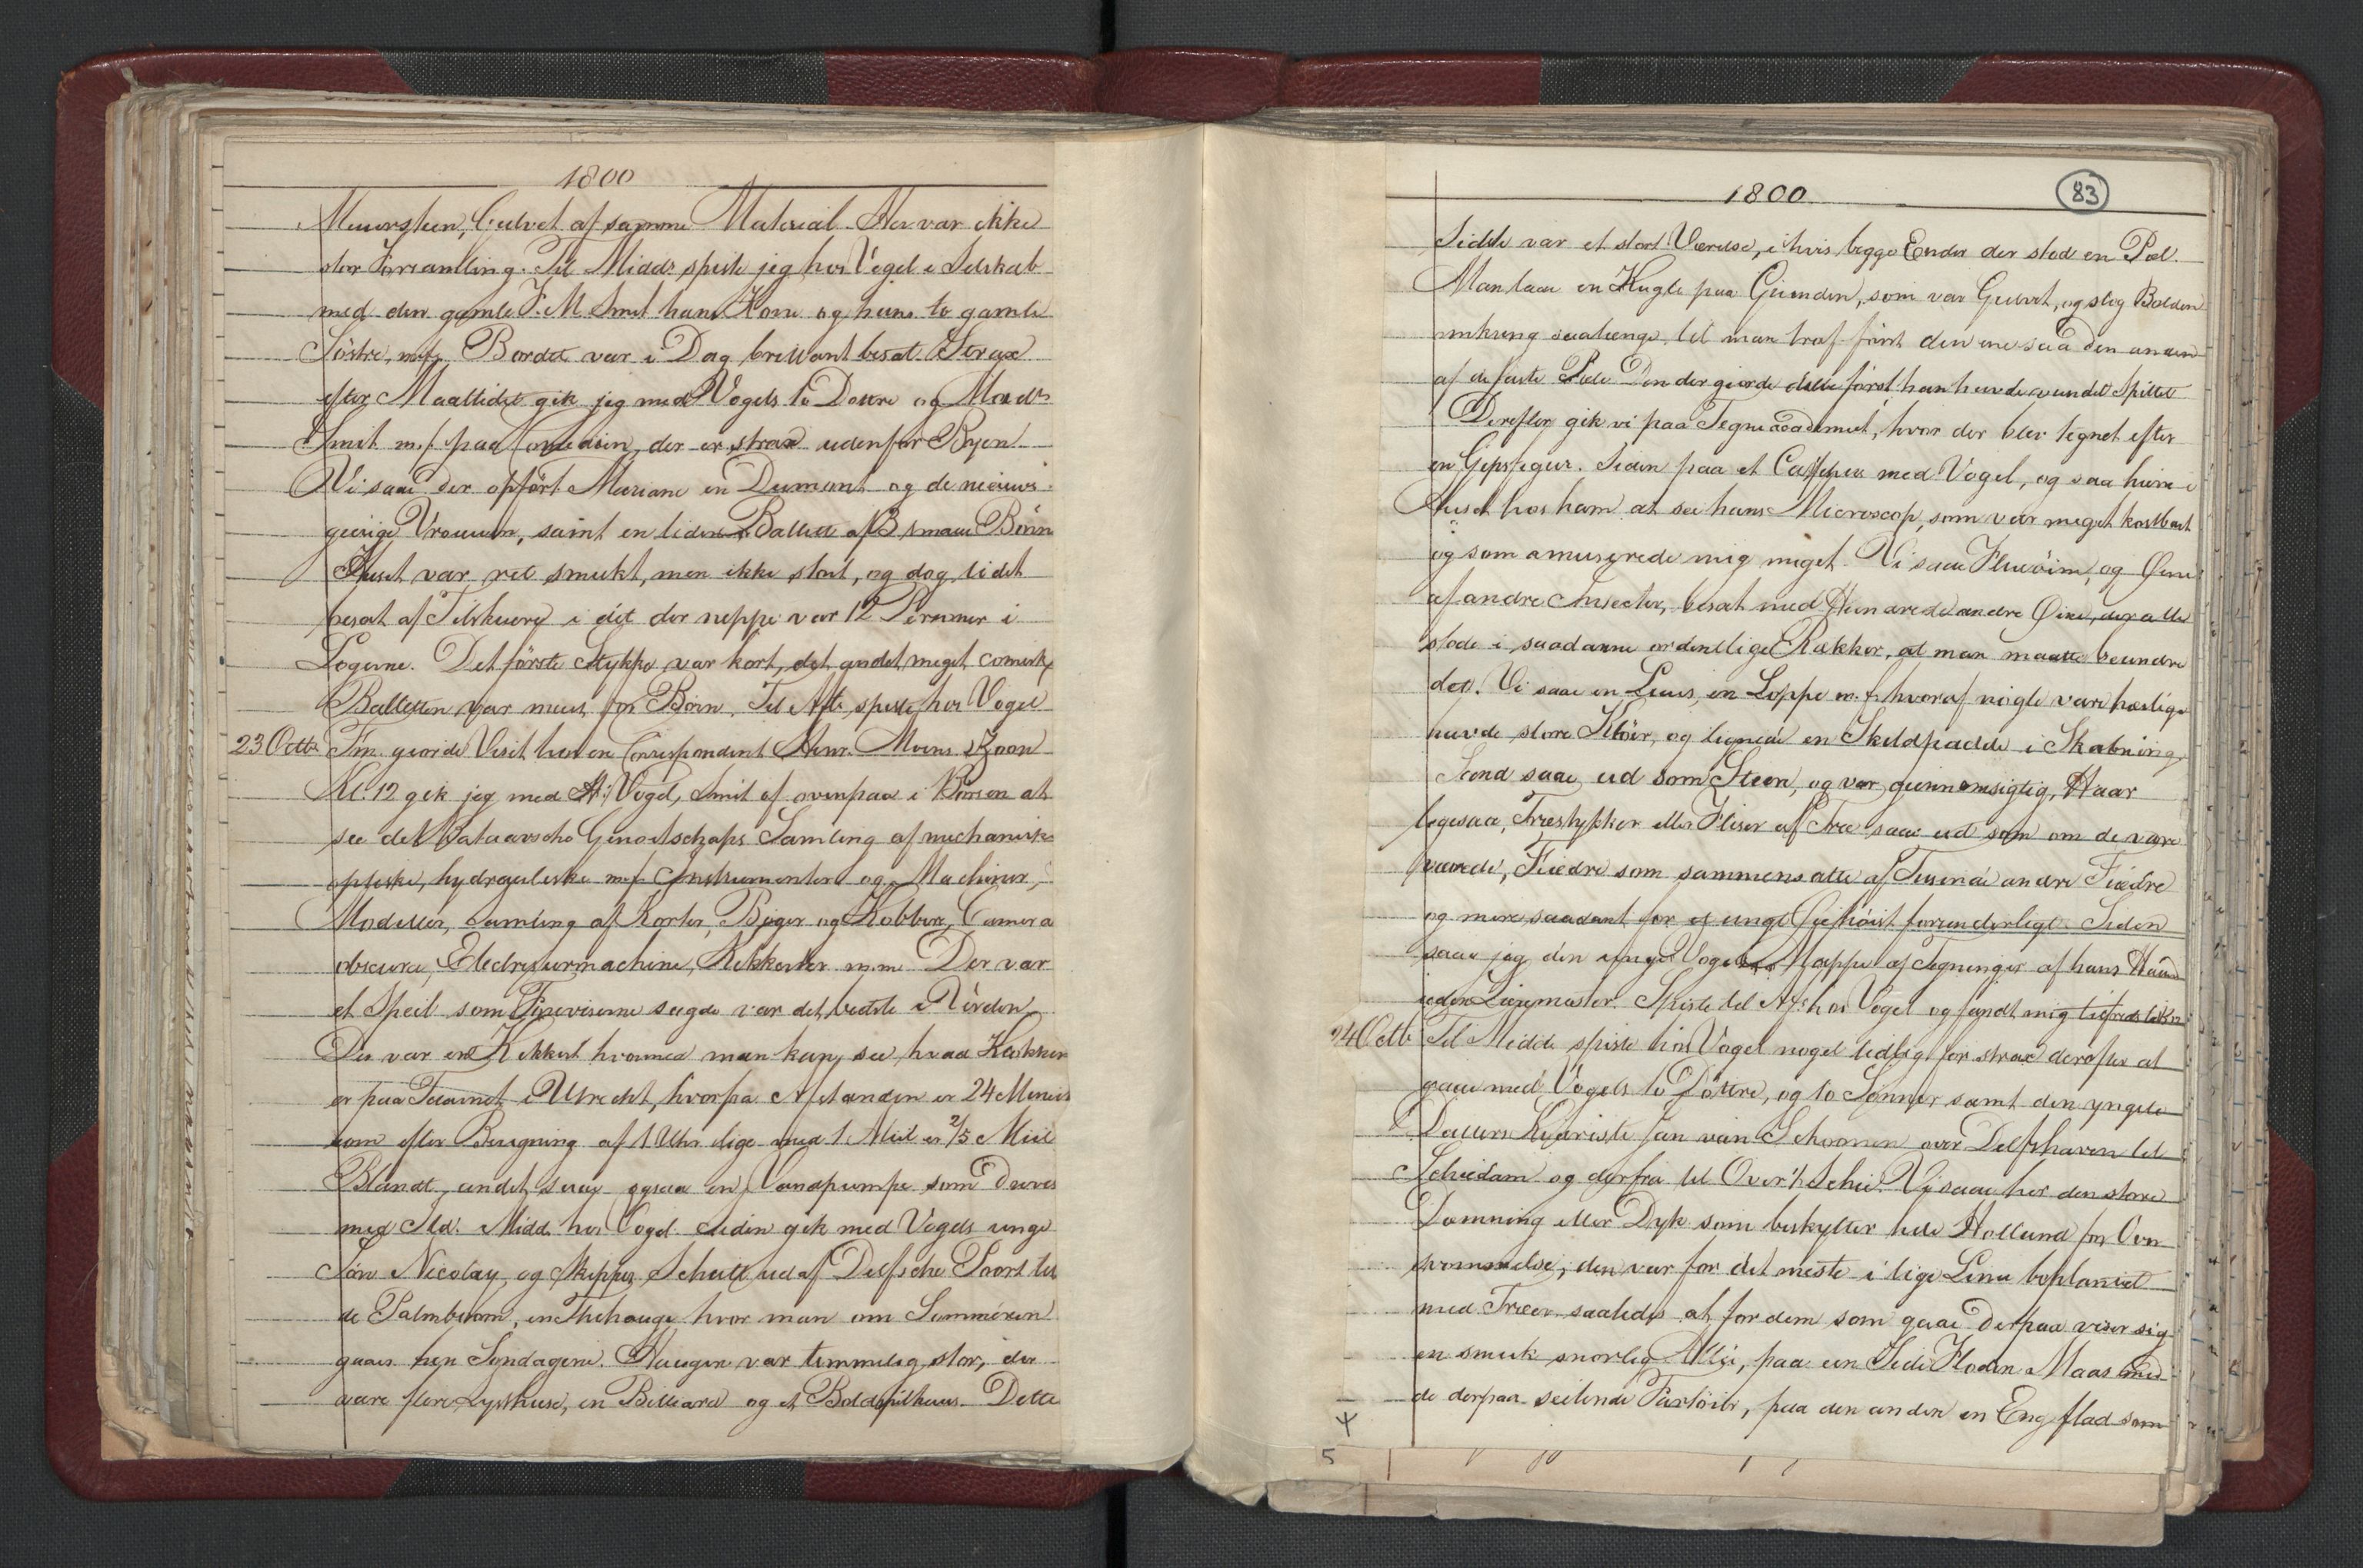 1800
Muursteen, Gulvet af samme Material. Her var ikke
stor Forsamling. Til Midd: spiste jeg hos Vogel i Selskab
med den gamle J. M Smit hans Kone og hans to gamle
Söstre, m.f. Bordet var i Dag brillant besat. Strax
efter Maaltidet gik jeg med Vogels to Dottre og Mad:
Smit m.f. paa Comedien, der er strax udenfor Byen.
Vi saae der opfört Mariane en Dumont og de nieuws-
gierige Vrouwen, samt en liden Ballet af 3 smaae Börn
Huset var ret smukt, men ikke stort, og dog lidet
besat af Tilskuere i det der neppe var 12 Personer i
Logerne. Det förste Stykke var kort, det andet meget comisk,
Balletten var meest for Börn. Til Aft: spiste hos Vogel
23 Octb: Fm. giorde Visit hos en Correspondent Henr. Moens
Kl. 12 gik jeg med Hr: Vogel, Smit ovenpaa i Börsen at
see det Bataavsche Genootschaps Samling af mechaniske
optiske, hydrauliske m.f. Instrumenter og Machiner,
Modeller, Samling af Karter, Böger og Kobbere, Camera
obscura, Electrisermachine, Kikkerter m.m. Der var
et Speil som Foreviserne sagde var det bedste i Verden
Der var en Kikkert hvormed man kan see hvad Klokken
er paa Taarnet i Utrecht, hvorfra Afstanden er 24
som efter Beregning af 1 Uhr lige med 1 Miil er 2/5 Miil
Blandt andet saae ogsaa en Vandpumpe som drives
med Ild. Midd: hos Vogel. Siden gik med Vogels unge
Sön Nicolay og Skipper Schult ud af Delfsche Poort til
de Palmboom, en Thehauge hvor man om Sommeren
gaaer hen Syndagene. Haugen var temmelig stor, der
vare flere Lysthuse, en Billiard og et Boldspilhuus. Dette
83
1800
Sidste var et stort Værelse, i hvis begge Ender der stod en Pæl.
Man laae en Kugle paa Grunden, som var Gulvet, og slog Bolden
omkring saalænge til man traf först den ene saa den anden
af de faste Pæle. Den der giorde dette först, han havde vundet Spillet
Derefter gik vi paa Tegneacademiet, hvor der blev tegnet efter
en Gipsfigur. Siden paa et Caffehuus med Vogel, og saa hiem i
Huset hos ham at see hans Microscop, som var meget kostbart
og som amuserede mig meget. Vi saae Flueöine, og Öine
af andre Insecter, besat med Hundrede andre Öine, der alle
stode i saadanne ordentlige Rækker, at man maatte beundre
det. Vi saae en Luus, en Loppe m.f. hvoraf nogle vare hæslige
havde store Klöer, og lignede en Skildpadde i Skabning,
Sand saae ud som Steen, og var giennemsigtig, Haar
ligesaa, Træstykker eller Fliser af Træ saae ud som om de vare
vævede, Fiædre som sammensatte af Tusinde andre Fiædre
og mere saadant for et unge höist forunderligt. Siden
saae jeg den unge Vogels Mappe af Tegninger af hans Haand
uden Læremester. Spiste til Aft: hos Vogel og fandt mig
24 Octb: Til Midd: spiste hos Vogel noget tidlig for strax derefter at
gaae med Vogels to Döttre, og to Sönner samt den yngste
Datters Kiæriste Jan van Schoonen over Delfshaven til
Schiedam og derfra til Over'h Schie. Vi saae her den store
Dæmning eller Dyk som beskytter hele Holland for Over-
svömmelse; den var for det meste i lige Linie beplantet
med Træer saaledes at for dem som gaae derpaa viser sig
en smuk snorlig Allée, paa een Side Floden Maas med
de derpaa seilende Fartöier, paa den anden en Eng flad som
4
5